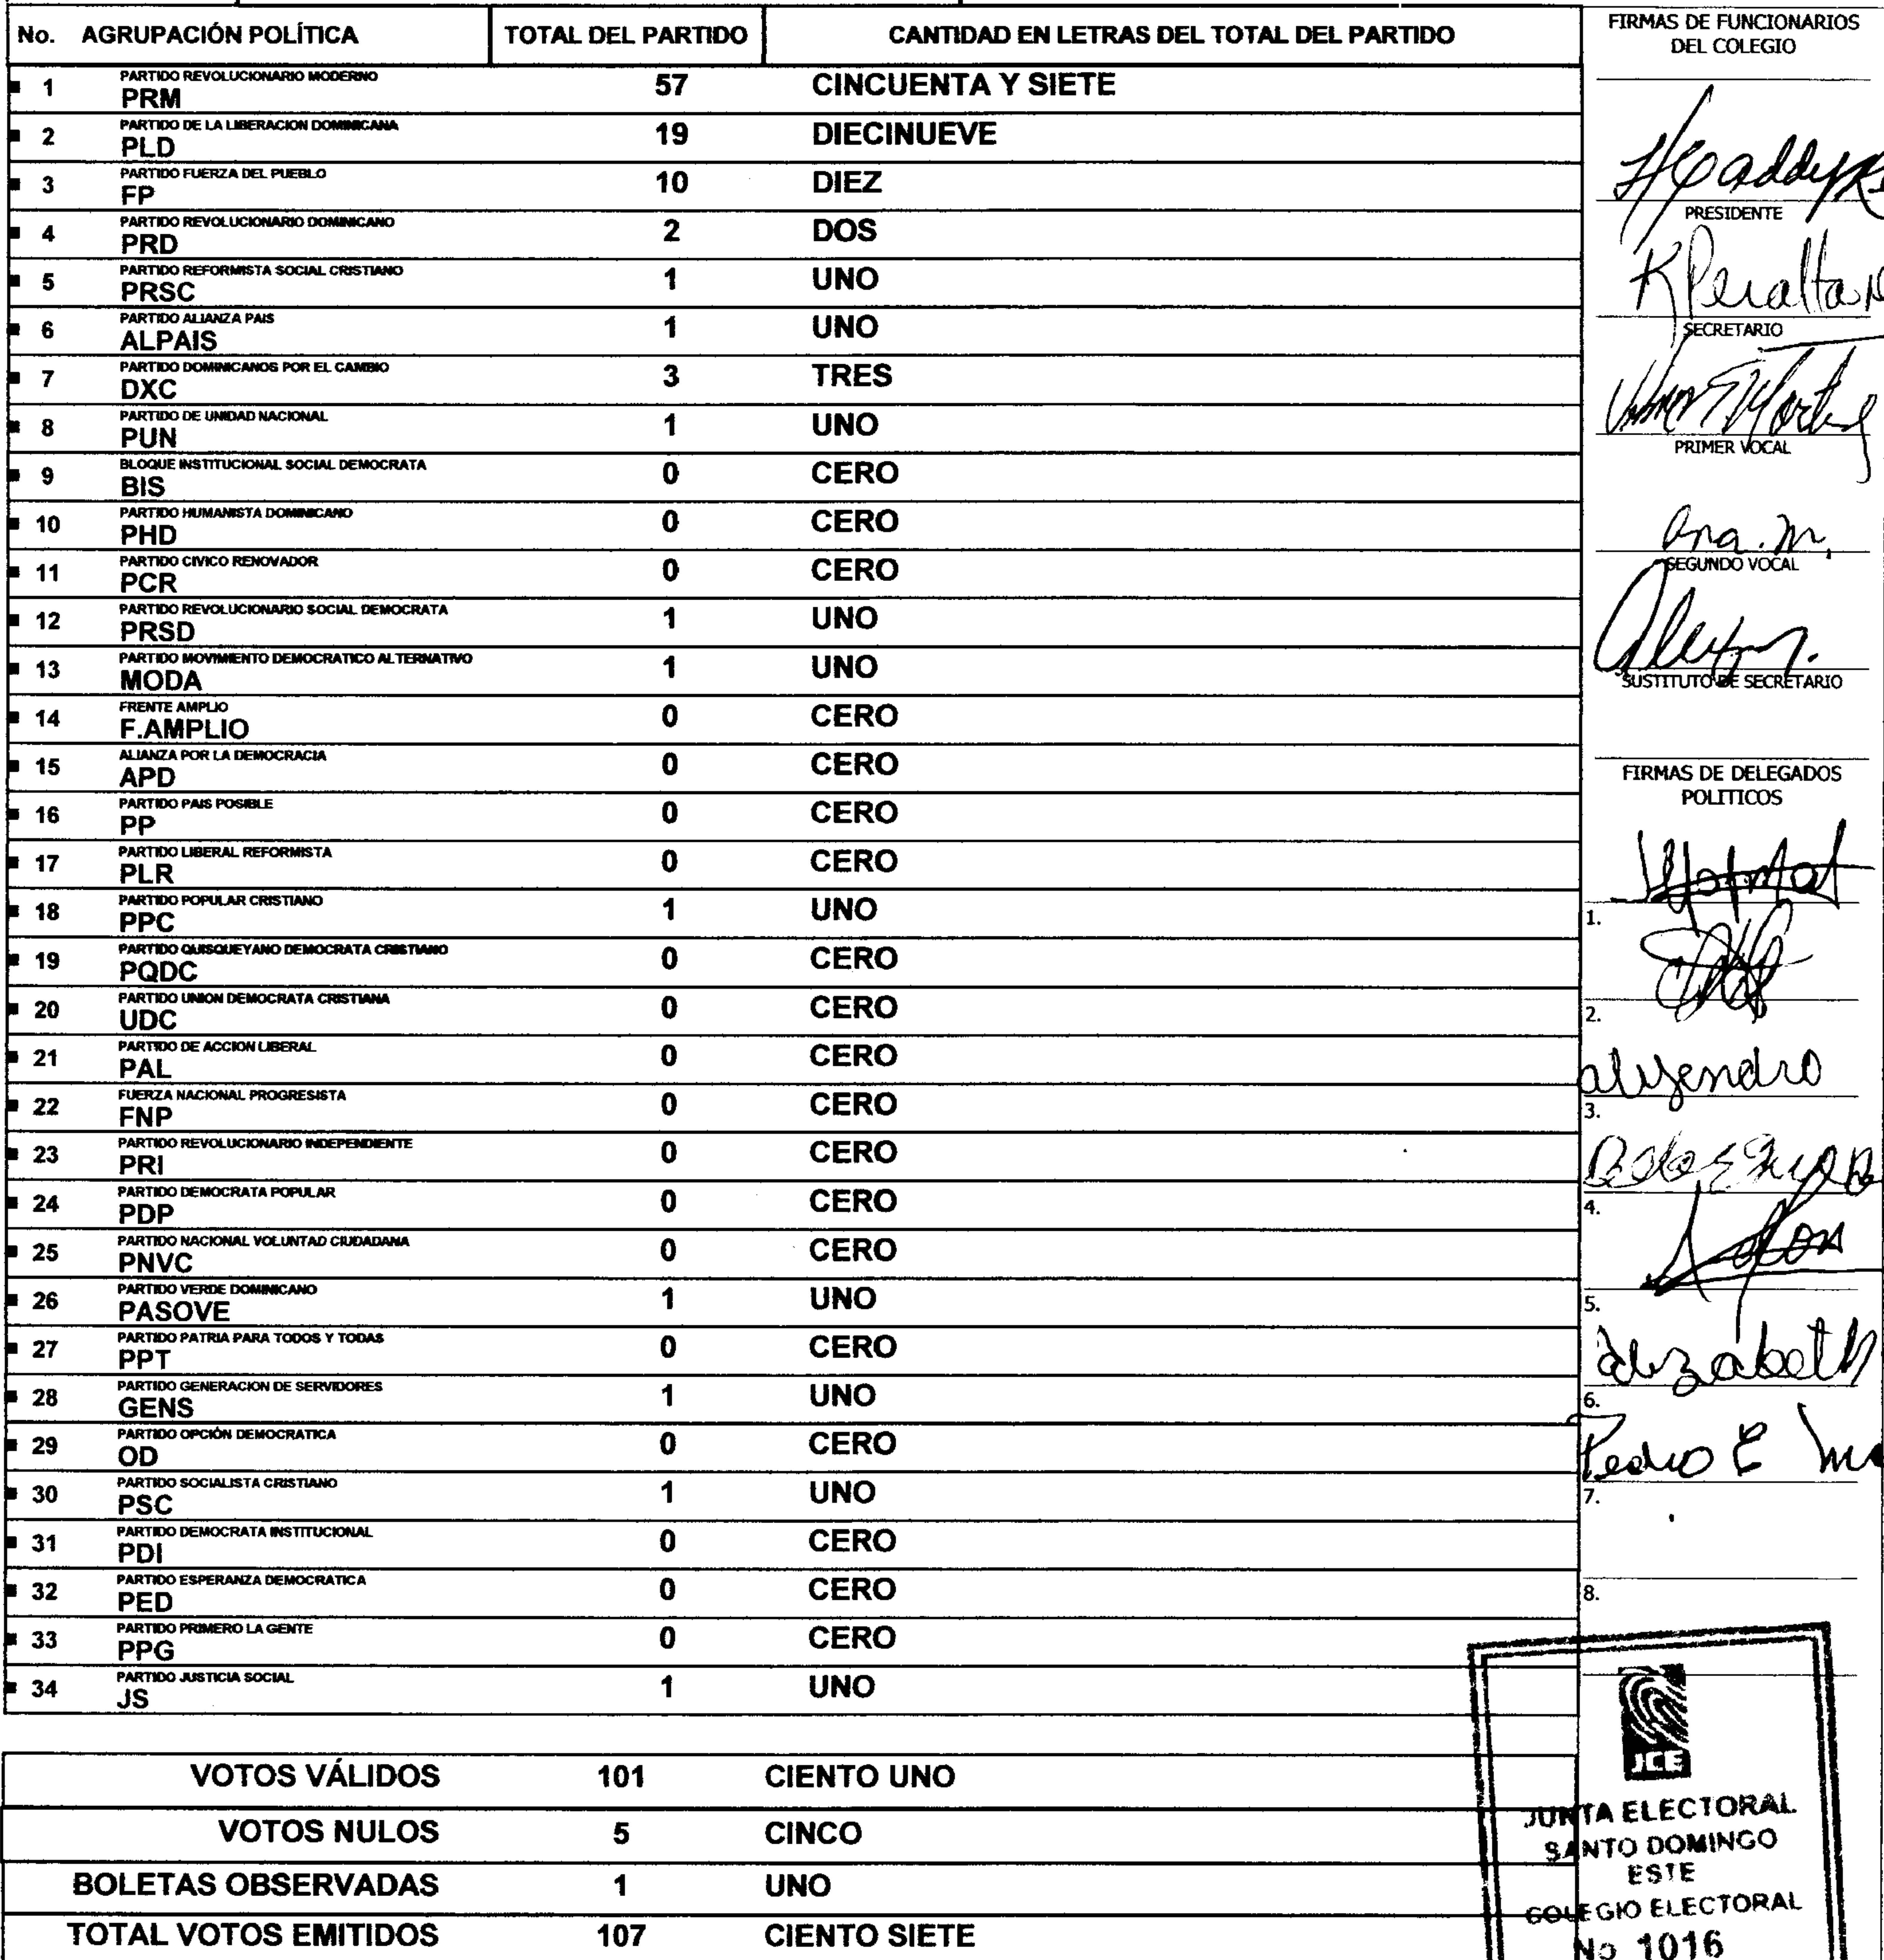 No. AGRUPACIÓN POLÍTICA TOTAL DEL PARTIDO CANTIDAD EN LETRAS DEL TOTAL DEL PARTIDO
PARTIDO REVOLUCIONARIO MODERNO
1 PRM 57 CINCUENTA Y SIETE
PARTIDO DE LA LIBERACION DOMINICANA
2 PLD 19 DIECINUEVE
PARTIDO FUERZA DEL PUEBLO
3 FP 10 DIEZ
PARTIDO REVOLUCIONARIO DOMINICANO
4 PRD 2 DOS
PARTIDO REFORMISTA SOCIAL CRISTIANO
5 PRSC 1 UNO
PARTIDO ALIANZA PAIS
6 ALPAIS 1 UNO
PARTIDO DOMINICANOS POR EL CAMBIO
7 DXC 3 TRES
PARTIDO DE UNIDAD NACIONAL
8 PUN 1 UNO
BLOQUE INSTITUCIONAL SOCIAL DEMOCRATA
9 BIS 0 CERO
PARTIDO HUMANISTA DOMINICANO
10 PHD 0 CERO
PARTIDO CIVICO RENOVADOR
11 PCR 0 CERO
PARTIDO REVOLUCIONARIO SOCIAL DEMOCRATA
12 PRSD 1 UNO
PARTIDO MOVIMIENTO DEMOCRATICO ALTERNATIVO
13 MODA 1 UNO
FRENTE AMPLIO
14 F.AMPLIO 0 CERO
ALIANZA POR LA DEMOCRACIA
15 APD 0 CERO
PARTIDO PAIS POSIBLE
16 PP 0 CERO
PARTIDO LIBERAL REFORMISTA
17 PLR 0 CERO
PARTIDO POPULAR CRISTIANO
18 PPC 1 UNO
PARTIDO QUISQUEYANO DEMOCRATA CRISTIANO
19 PQDC 0 CERO
PARTIDO UNION DEMOCRATA CRISTIANA
20 UDC 0 CERO
PARTIDO DE ACCION LIBERAL
21 PAL 0 CERO
FUERZA NACIONAL PROGRESISTA
22 FNP 0 CERO
PARTIDO REVOLUCIONARIO INDEPENDIENTE
23 PRI 0 CERO
PARTIDO DEMOCRATA POPULAR
24 PDP 0 CERO
PARTIDO NACIONAL VOLUNTAD CIUDADANA
25 PNVC 0 CERO
PARTIDO VERDE DOMINICANO
26 PASOVE 1 UNO
PARTIDO PATRIA PARA TODOS Y TODAS
27 PPT 0 CERO
PARTIDO GENERACION DE SERVIDORES
28 GENS 1 UNO
PARTIDO OPCIÓN DEMOCRATICA
29 OD 0 CERO
PARTIDO SOCIALISTA CRISTIANO
30 PSC 1 UNO
PARTIDO DEMOCRATA INSTITUCIONAL
31 PDI 0 CERO
PARTIDO ESPERANZA DEMOCRATICA
32 PED 0 CERO
PARTIDO PRIMERO LA GENTE
33 PPG 0 CERO
PARTIDO JUSTICIA SOCIAL
34 JS 1 UNO
VOTOS VÁLIDOS 101 CIENTO UNO
VOTOS NULOS 5 CINCO
BOLETAS OBSERVADAS 1 UNO
TOTAL VOTOS EMITIDOS 107 CIENTO SIETE
FIRMAS DE FUNCIONARIOS
DEL COLEGIO
PRESIDENTE
K Peralta
SECRETARIO
PRIMER VOCAL
Ana. M.
SEGUNDO VOCAL
SUSTITUTO DE SECRETARIO
FIRMAS DE DELEGADOS
POLITICOS
1.
2.
3.
4.
5.
6.
Pedro E
7.
8.
JCE
JUNTA ELECTORAL
SANTO DOMINGO
ESTE
COLEGIO ELECTORAL
No 1016